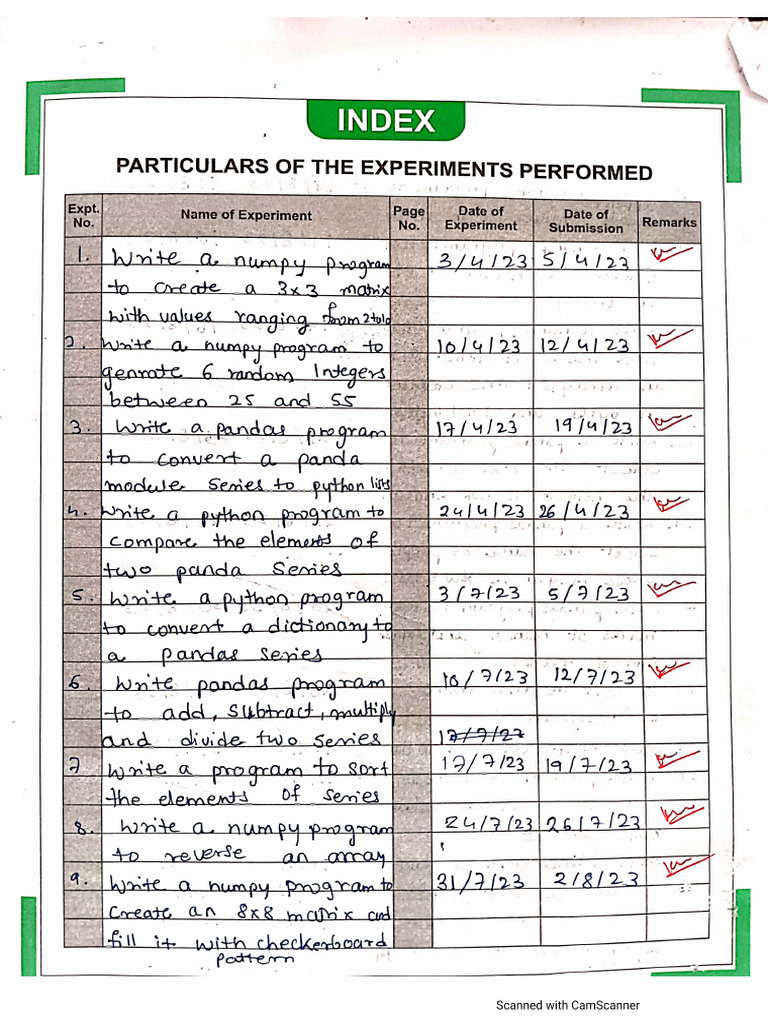 INDEX
PARTICULARS OF THE EXPERIMENTS PERFORMED
Expt. No. Name of Experiment Page No. Date of Experiment Date of Submission Remarks
1. Write a numpy program 3/4/23 5/4/23
to create a 3x3 matrix
with values ranging from 2 to 10
2. Write a numpy program to 10/4/23 12/4/23
genrate 6 random Integers
between 25 and 55
3. Write a pandas program 17/4/23 19/4/23
to convert a panda
module series to python lists
4. Write a python program to 24/4/23 26/4/23
compare the elements of
two panda Series
5. Write a python program 3/7/23 5/7/23
to convert a dictionary to
a pandas series
6. Write pandas program 10/7/23 12/7/23
to add, subtract, multiply
and divide two series 17/7/27
7 Write a program to sort 17/7/23 19/7/23
the elements of series
8. Write a numpy program 24/7/23 26/7/23
to reverse an array
9. Write a numpy program to 31/7/23 2/8/23
create an 8x8 matrix and
fill it with checkerboard
pattern
Scanned with CamScanner